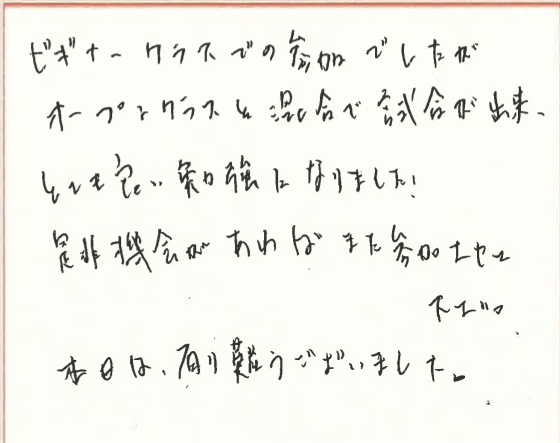 ビギナークラスでの参加でしたが
オープンクラスと混合で試合が出来、
とても良い勉強になりました!
是非機会があればまた参加させて
下さい。
本日は、有り難うございました。